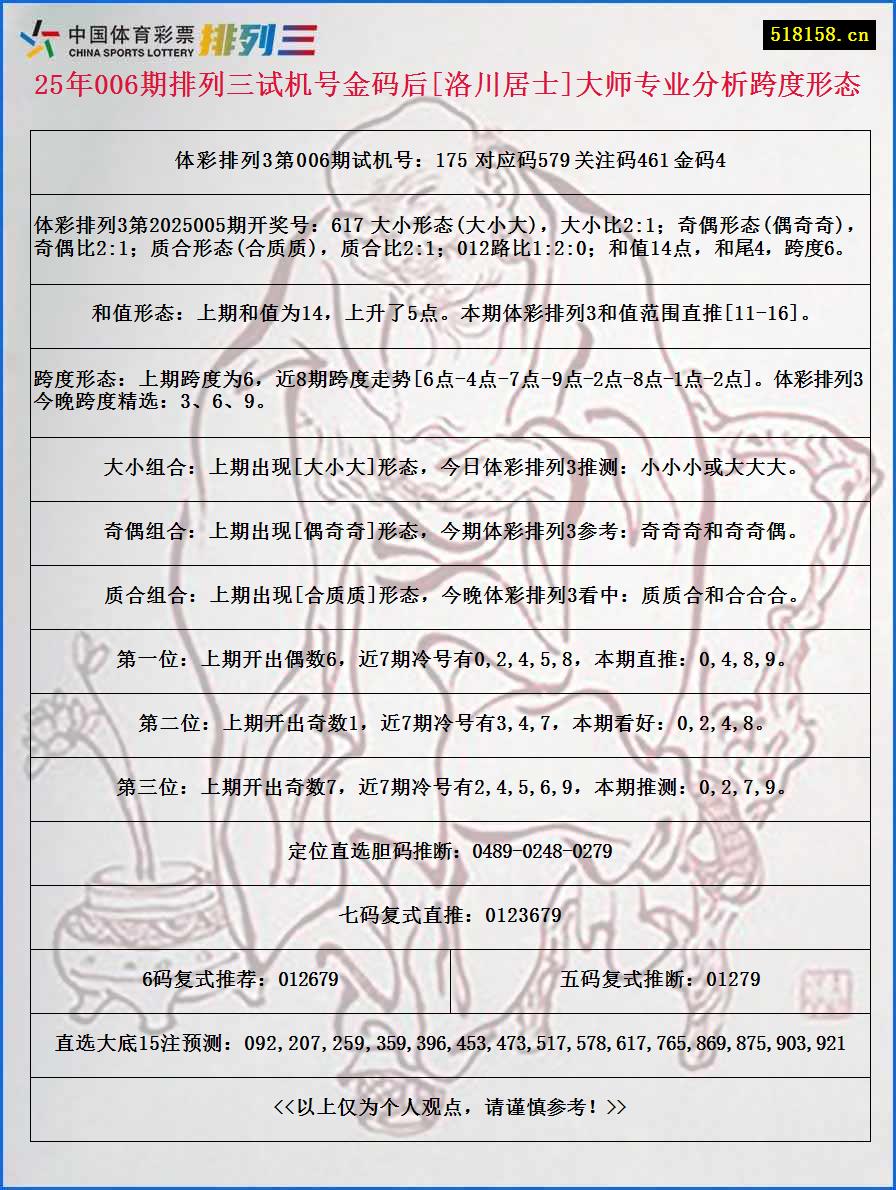 中国体育彩票
CHINA SPORTS LOTTERY
排列三
518158.cn
25年006期排列三试机号金码后[洛川居士]大师专业分析跨度形态
体彩排列3第006期试机号：175 对应码579关注码461金码4
体彩排列3第2025005期开奖号：617 大小形态(大小大)，大小比2:1；奇偶形态(偶奇奇)，
奇偶比2:1；质合形态(合质质)，质合比2:1；012路比1:2:0；和值14点，和尾4，跨度6。
和值形态：上期和值为14，上升了5点。本期体彩排列3和值范围直推[11-16]。
跨度形态：上期跨度为6，近8期跨度走势[6点-4点-7点-9点-2点-8点-1点-2点]。体彩排列3
今晚跨度精选：3、6、9。
大小组合：上期出现[大小大]形态，今日体彩排列3推测：小小小或大大大。
奇偶组合：上期出现[偶奇奇]形态，今期体彩排列3参考：奇奇奇和奇奇偶。
质合组合：上期出现[合质质]形态，今晚体彩排列3看中：质质合和合合合。
第一位：上期开出偶数6，近7期冷号有0,2,4,5,8，本期直推：0,4,8,9。
第二位：上期开出奇数1，近7期冷号有3,4,7，本期看好：0,2,4,8。
第三位：上期开出奇数7，近7期冷号有2,4,5,6,9，本期推测：0,2,7,9。
定位直选胆码推断：0489-0248-0279
七码复式直推：0123679
6码复式推荐：012679
五码复式推断：01279
直选大底15注预测：092,207,259,359,396,453,473,517,578,617,765,869,875,903,921
<<以上仅为个人观点，请谨慎参考！>>